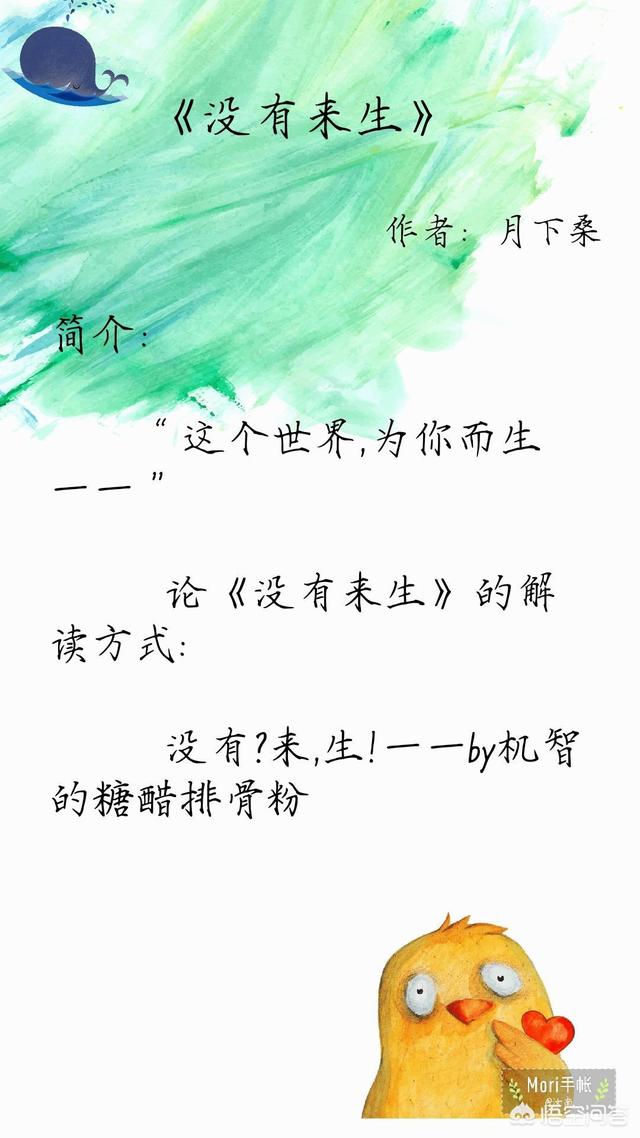 《没有来生》
作者：月下桑
简介：
“这个世界,为你而生
——”
论《没有来生》的解
读方式:
没有?来,生!——by机智
的糖醋排骨粉
Mori手帐
悟空问答